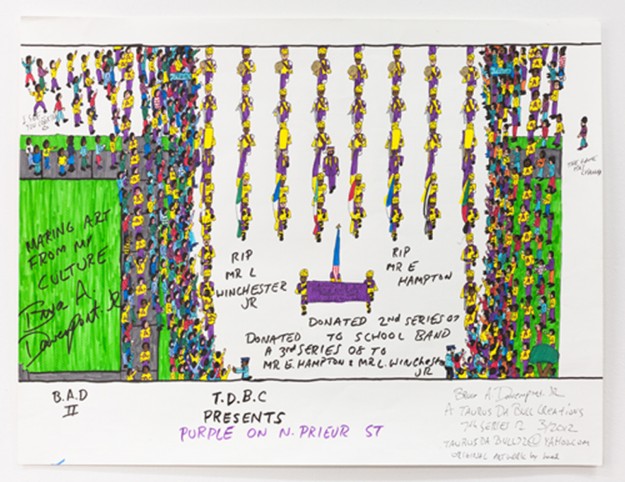 MAKING ART
FROM MY
CULTURE
Bruce A.
Davenport. Jr
RIP
MR L
WINCHESTER
JR
RIP
MR E
HAMPTON
DONATED 2nd SERIES 07
DONATED TO SCHOOL BAND
A 3rd SERIES 08 TO
MR E. HAMPTON & MR L. WINCHESTER
JR
B.A.D
II
T.D.B.C
PRESENTS
PURPLE ON N. PRIEUR ST
Bruce A Davenport. Jr
A TAURUS DA BULL CREATIONS
7th SERIES 12 3/2012
ORIGINAL ARTWORK by